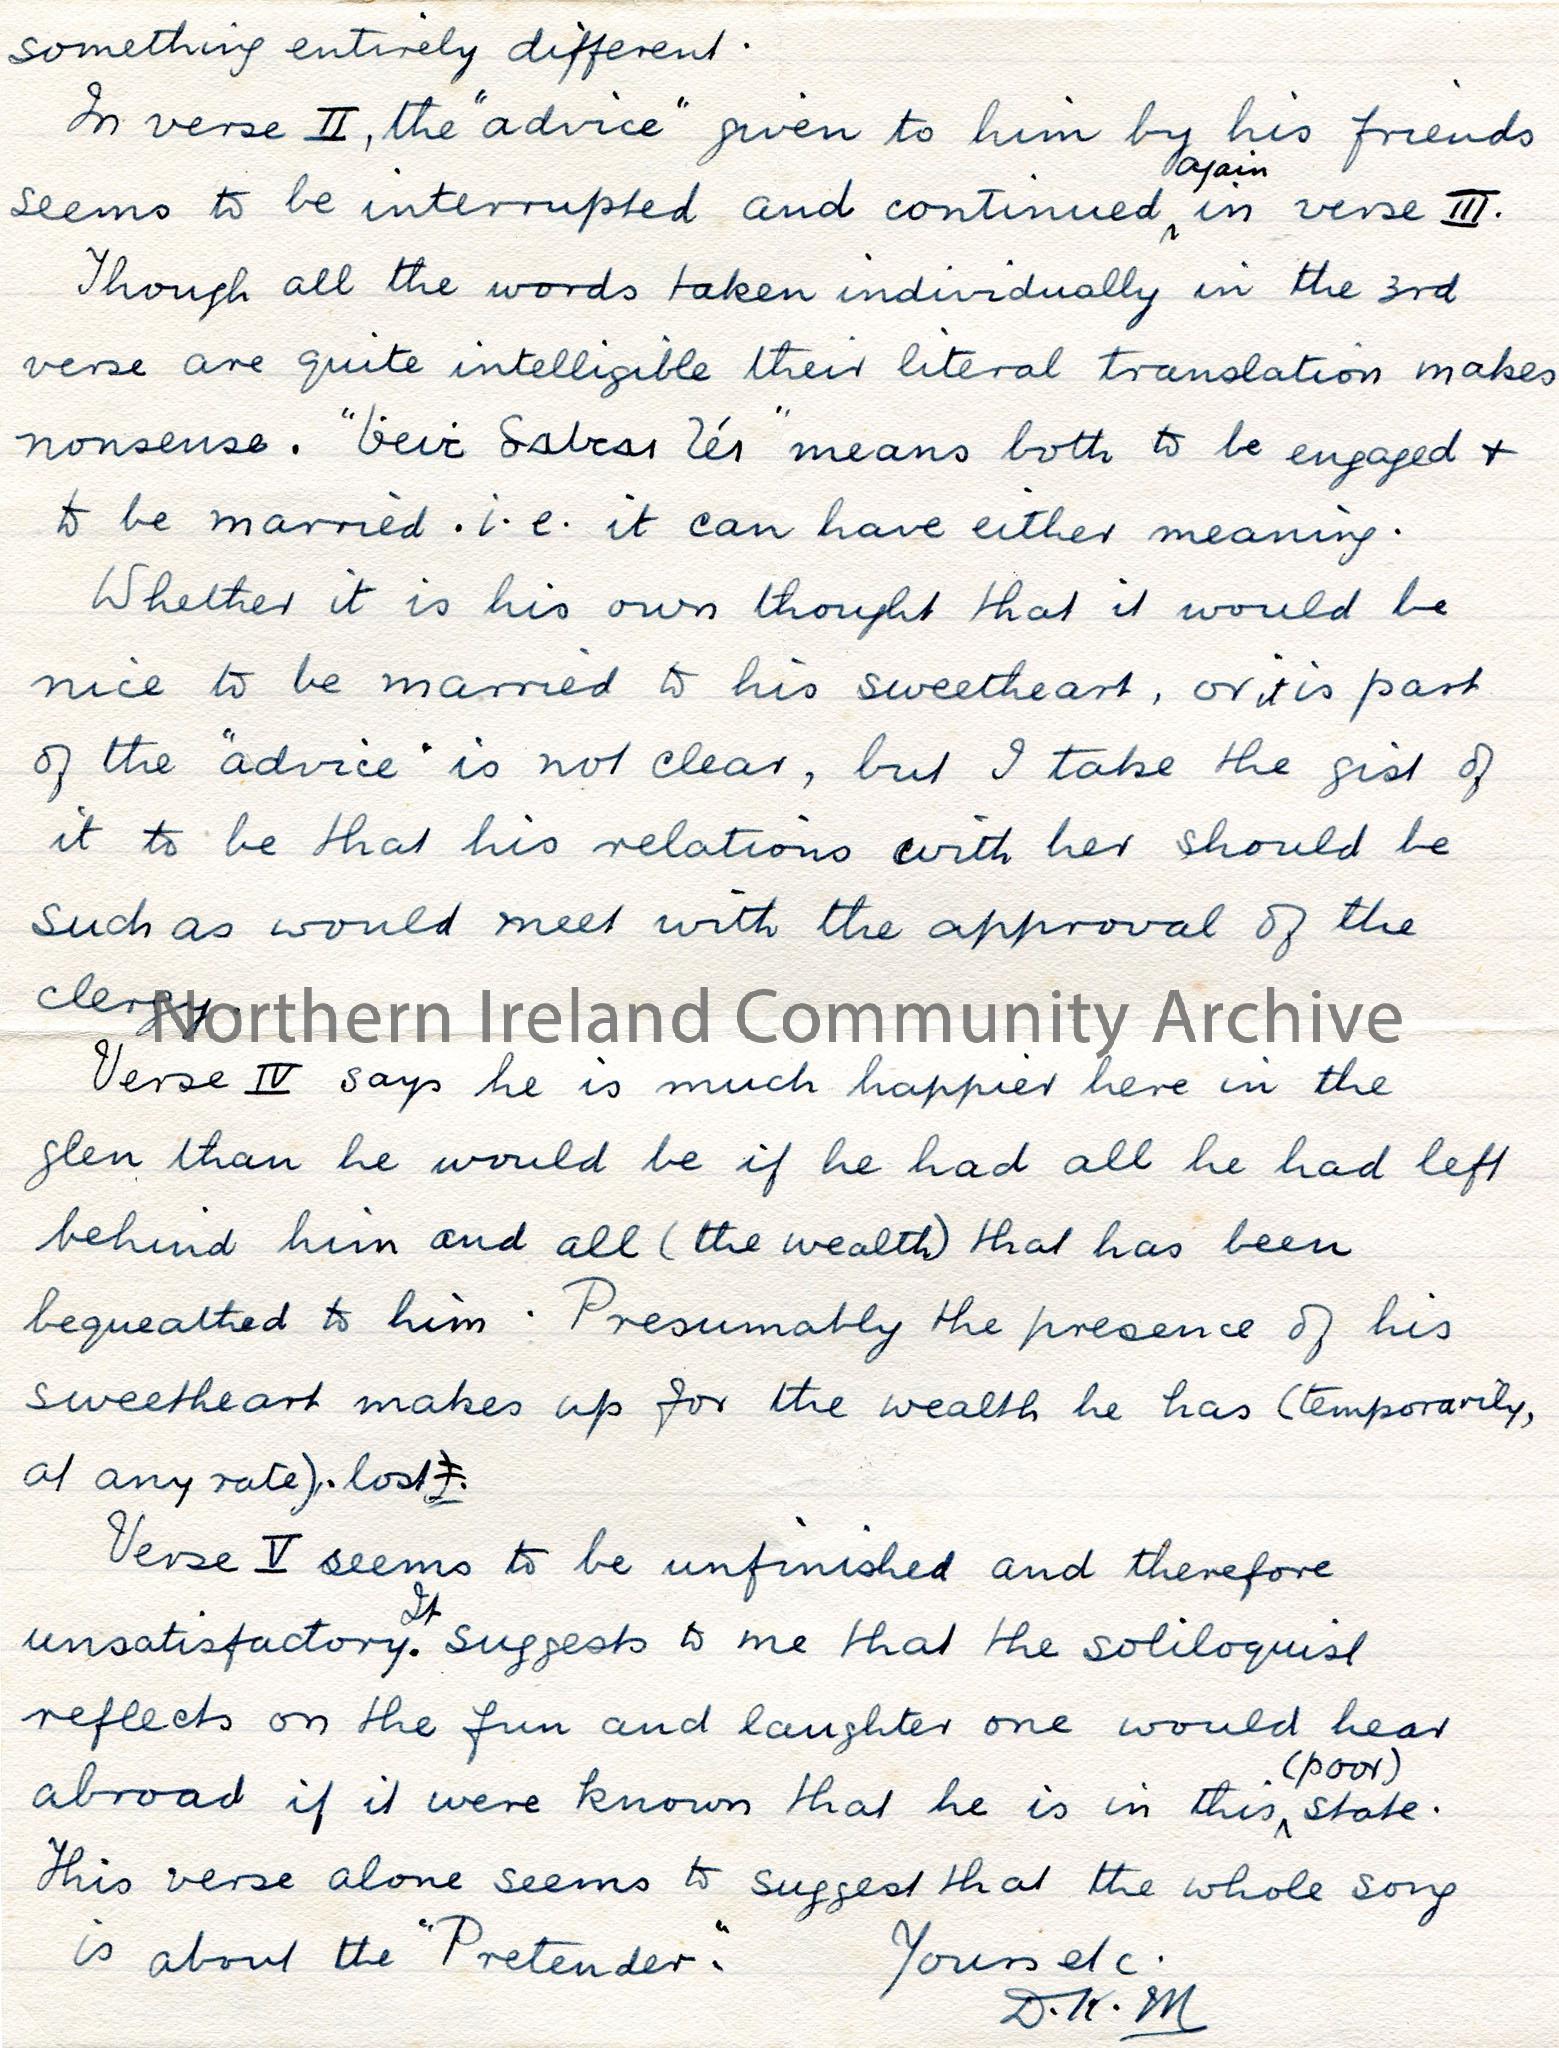 something entirely different.
In verse II, the "advice" given to him by his friends
seems to be interrupted and continued again in verse III.
Though all the words taken individually in the 3rd
verse are quite intelligible their literal translation makes
nonsense. " " means both to be engaged +
to be married. i.e. it can have either meaning.
Whether it is his own thought that it would be
nice to be married to his sweetheart, or it is part
of the "advice" is not clear, but I take the gist of
it to be that his relations with her should be
such as would meet with the approval of the
clergy.
Northern Ireland Community Archive
Verse IV says he is much happier here in the
glen than he would be if he had all he had left
behind him and all (the wealth) that has been
bequeathed to him. Presumably the presence of his
sweetheart makes up for the wealth he has (temporarily,
at any rate). lost.
Verse V seems to be unfinished and therefore
unsatisfactory. It suggests to me that the soliloquist
reflects on the fun and laughter one would hear
abroad if it were known that he is in this (poor) state.
This verse alone seems to suggest that the whole song
is about the "Pretender". Yours etc.
D.K.M